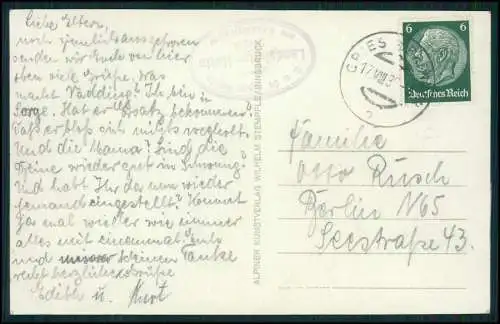 Liebe Eltern,
noch ziemlich ausgefroren
senden wir Euch von hier
oben viele Grüße. Was
macht Vadding? Ich bin in
Sorge. Hat er Ersatz bekommen?
Daß er bloß sich nichts
Und die Mama? Sind die
Beine wieder gut in Schwung?
Und habt Ihr da nun wieder
jemand eingestellt? Kommt
ja mal wieder wie immer
alles mit einemmal.
und unserer kleinen Tanke
recht herzliche Grüße
Edith u. Kurt
ALPINER KUNSTVERLAG WILHELM STEMPFLE/INNSBRUCK
GRIES
17.VIII.3
6 6
Deutsches Reich
Familie
Otto Rusch
Berlin N65
Seestraße 43.